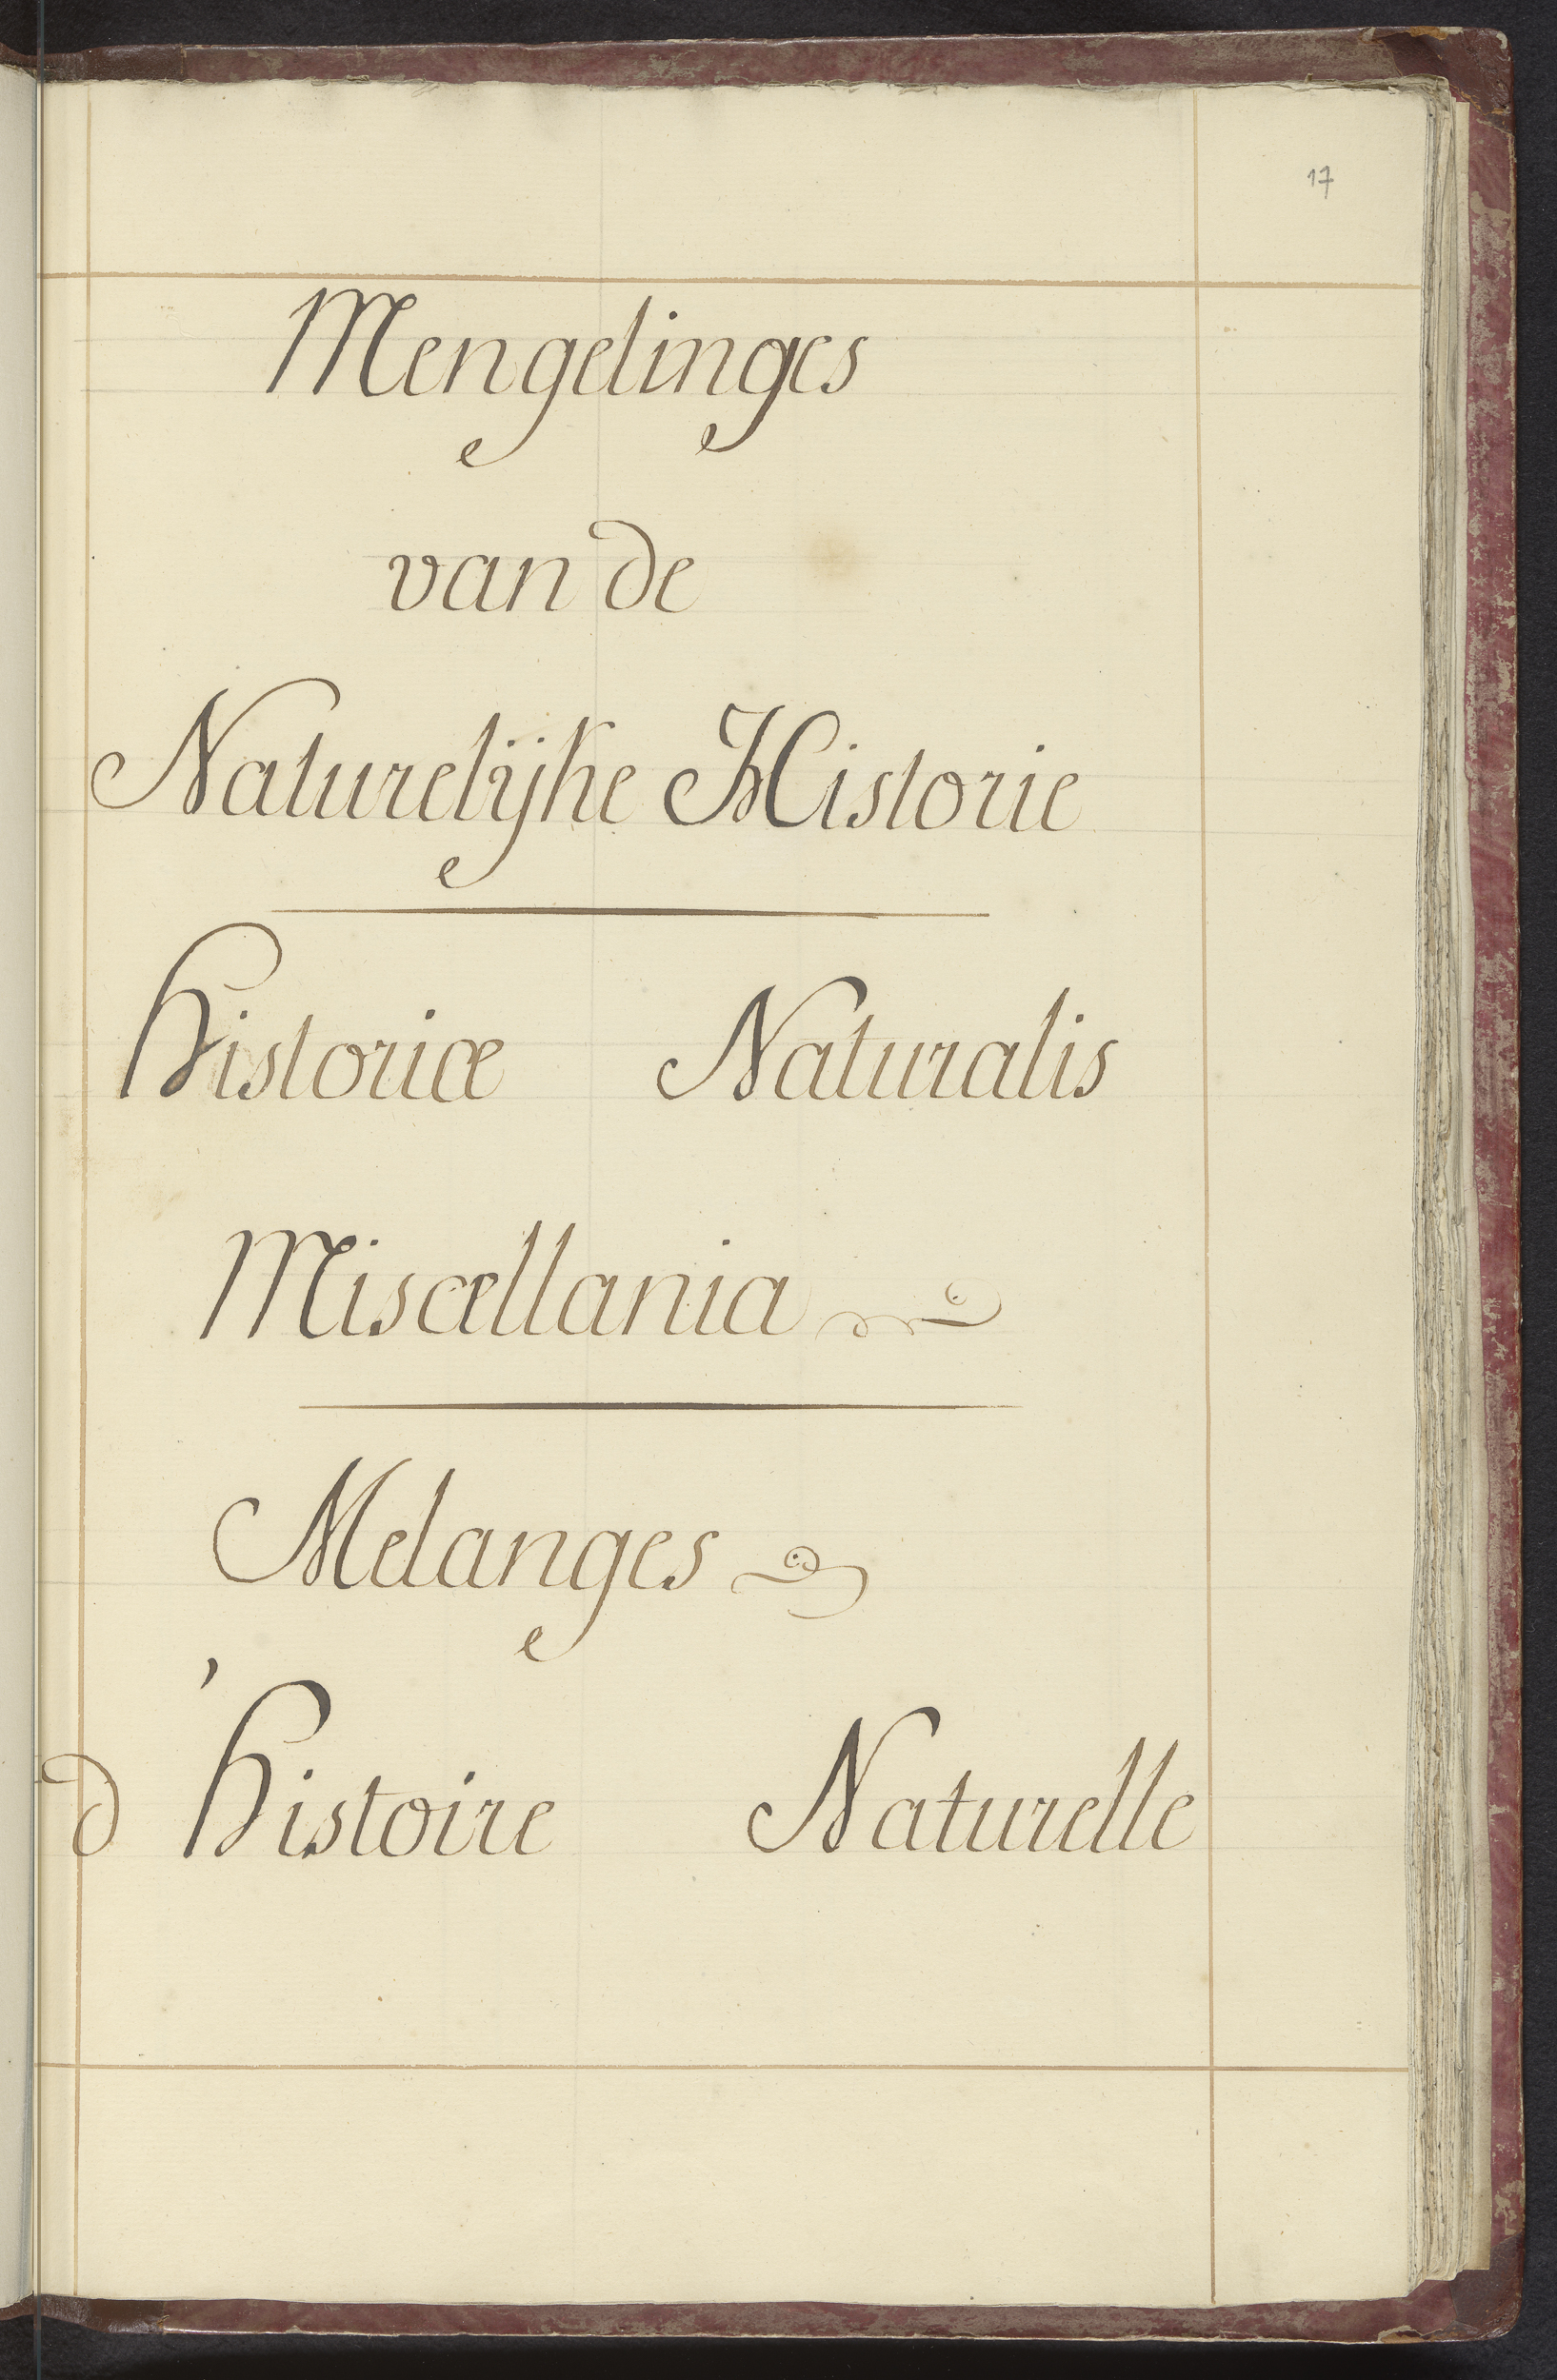 17
Mengelinges
van de
Naturelijke Historie
Historiæ Naturalis
Miscællania
Melanges
d'Histoire Naturelle